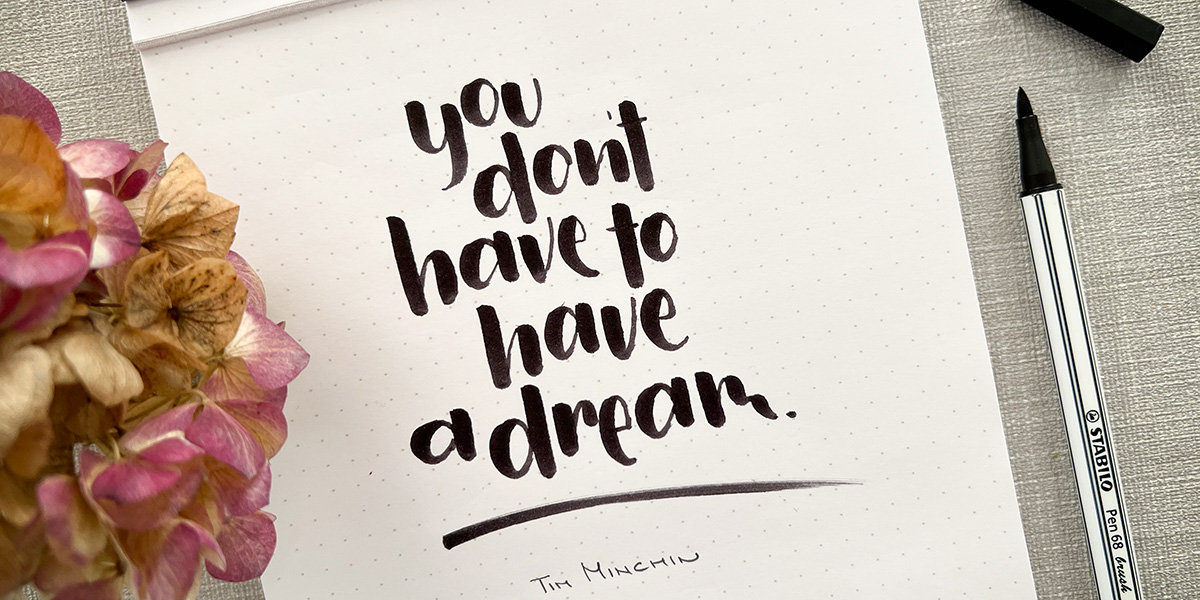 you
don't
have to
have
a dream.
TIM MINCHIN
STABILO Pen 68 brush